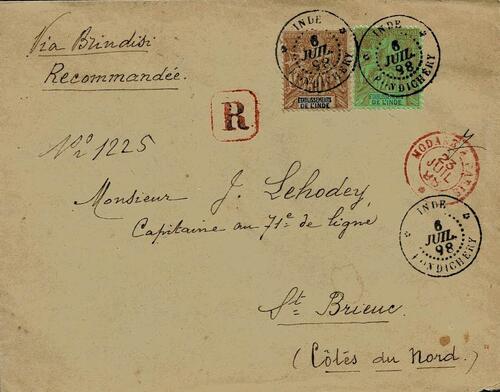 Via Brindisi
Recommandée.
INDE
6
JUIL.
98
PONDICHERY
ETABLISSEMENTS
DE L'INDE
INDE
6
JUIL.
98
PONDICHERY
DE L'INDE
R
No 1225
MODANE A PARIS
23
JUIL
98
Monsieur J. Lehodey,
Capitaine au 71e de ligne
INDE
6
JUIL.
98
PONDICHERY
St Brieuc
(Côtes du Nord.)